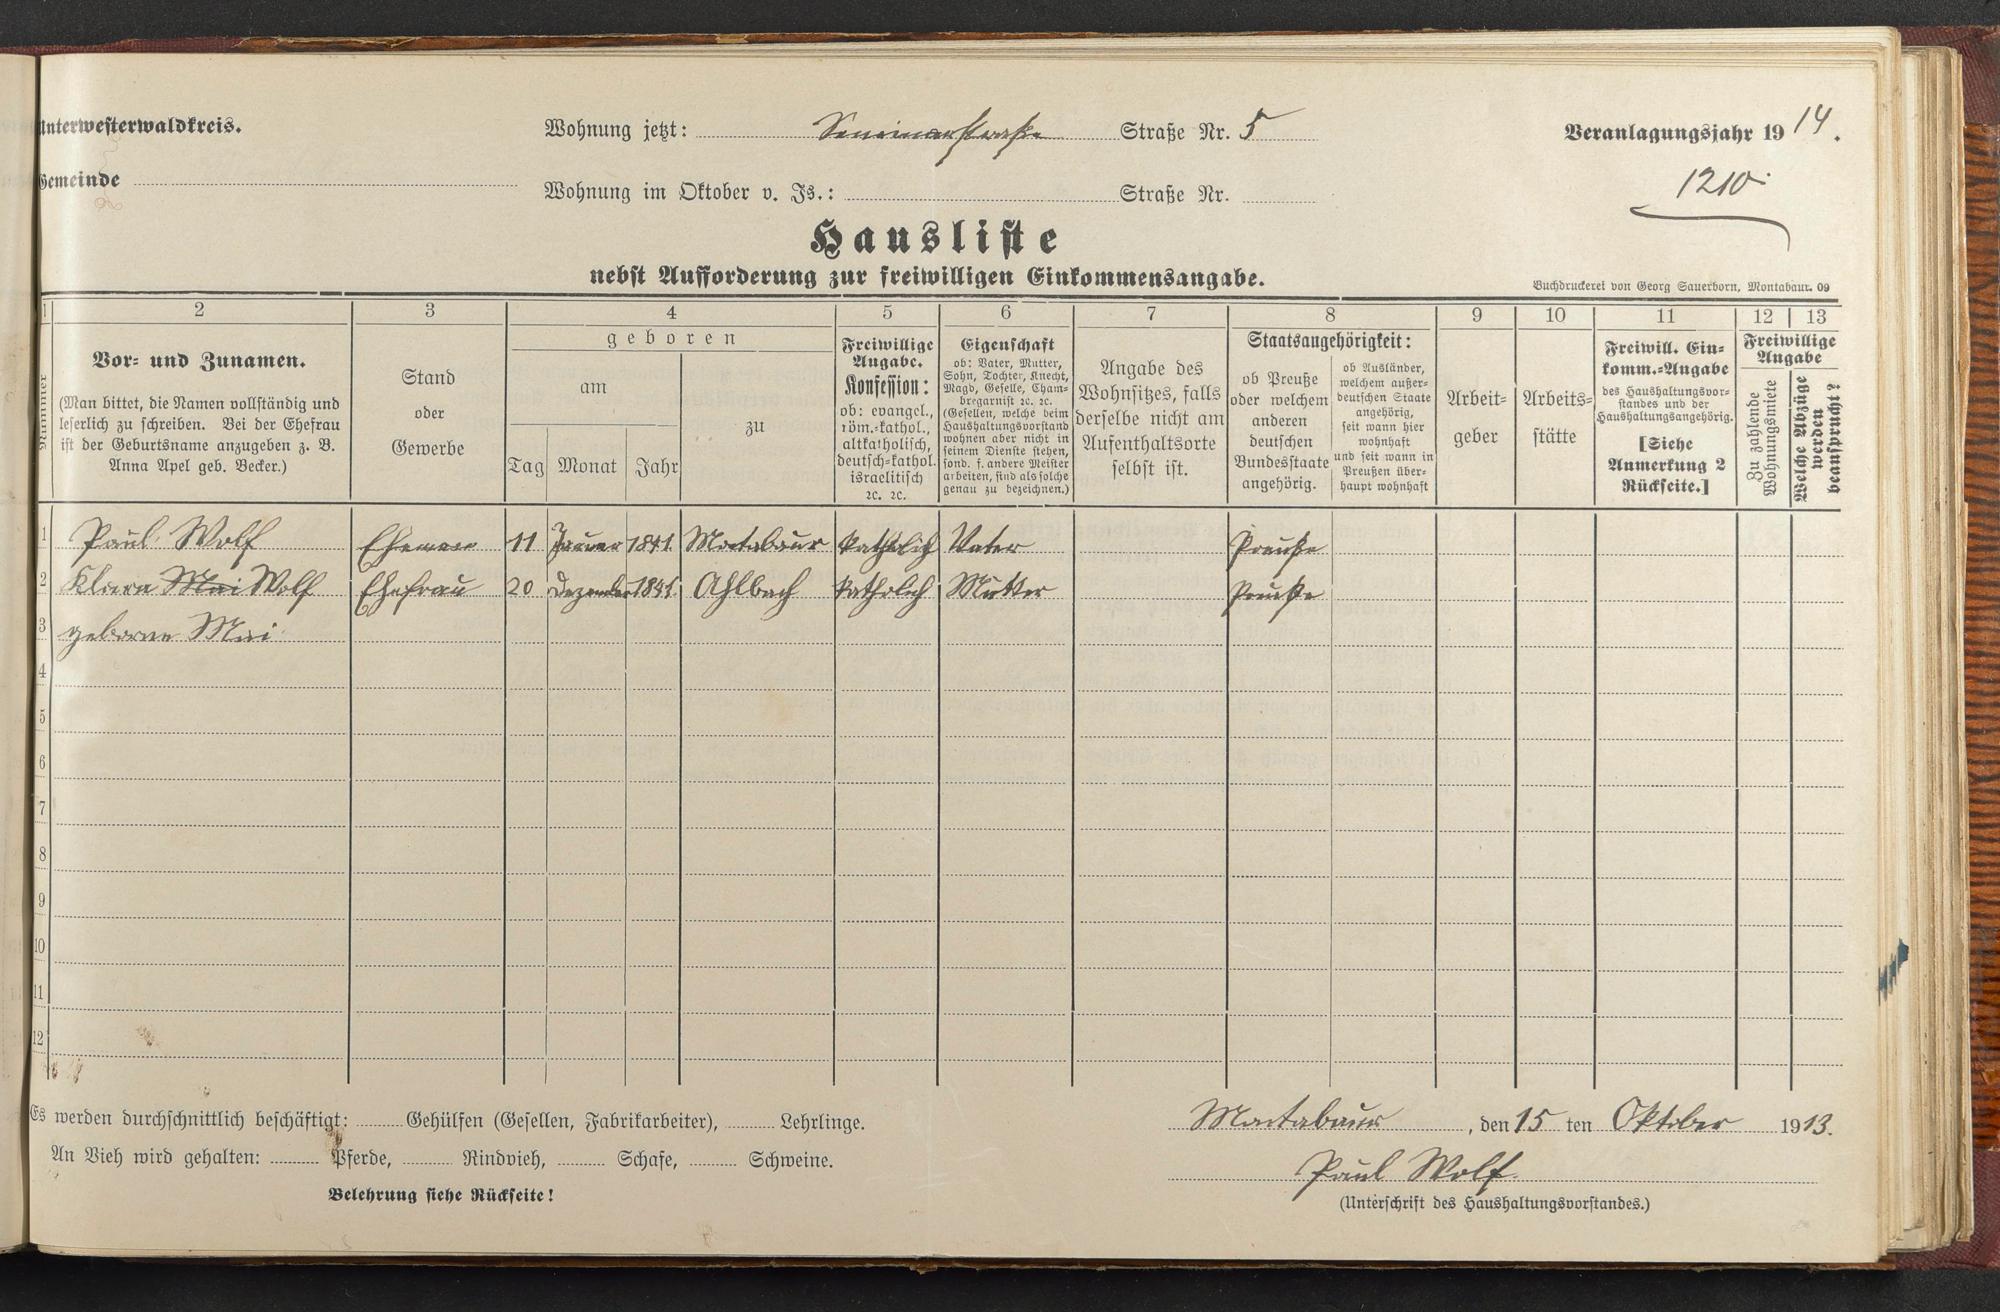 Unterwesterwaldkreis.
Wohnung jetzt: Seminarstraße Straße Nr. 5
Veranlagungsjahr 1914.
Gemeinde
Wohnung im Oktober v. Js.: Straße Nr.
1210.
Hausliste
nebst Aufforderung zur freiwilligen Einkommensangabe.
Buchdruckerei von Georg Sauerborn, Montabaur. 09
1 2 3 4 5 6 7 8 9 10 11 12 13
Nummer
Vor- und Zunamen.
(Man bittet, die Namen vollständig und
leserlich zu schreiben. Bei der Ehefrau
ist der Geburtsname anzugeben z. B.
Anna Apel geb. Becker.)
Stand
oder
Gewerbe
geboren
am
Tag Monat Jahr
zu
Freiwillige
Angabe.
Konfession:
ob: evangel.,
röm.-kathol.,
altkatholisch,
deutsch-kathol.
israelitisch
ꝛc. ꝛc.
Eigenschaft
ob: Vater, Mutter,
Sohn, Tochter, Knecht,
Magd, Geselle, Cham-
bregarnist ꝛc. ꝛc.
(Gesellen, welche beim
Haushaltungsvorstand
wohnen aber nicht in
seinem Dienste stehen,
sond. f. andere Meister
arbeiten, sind als solche
genau zu bezeichnen.)
Angabe des
Wohnsitzes, falls
derselbe nicht am
Aufenthaltsorte
selbst ist.
Staatsangehörigkeit:
ob Preuße
oder welchem
anderen
deutschen
Bundesstaate
angehörig.
ob Ausländer,
welchem außer-
deutschen Staate
angehörig,
seit wann hier
wohnhaft
und seit wann in
Preußen über-
haupt wohnhaft
Arbeit-
geber
Arbeits-
stätte
Freiwill. Ein-
komm.-Angabe
des Haushaltungsvor-
standes und der
Haushaltungsangehörig.
[Siehe
Anmerkung 2
Rückseite.]
Freiwillige
Angabe
Zu zahlende
Wohnungsmiete
Welche Abzüge
werden
beansprucht?
1 Paul Wolf Ehemann 11 Januar 1841 Montabaur katholich Vater Preuße
2 Klara Mai Wolf Ehefrau 20 Dezember Ahlbach katholich Mutter Preuße
3 geborne Mai
4
5
6
7
8
9
10
11
12
Es werden durchschnittlich beschäftigt: Gehülfen (Gesellen, Fabrikarbeiter), Lehrlinge.
Montabaur, den 15 ten Oktober 1913.
An Vieh wird gehalten: Pferde, Rindvieh, Schafe, Schweine.
Paul Wolf.
Belehrung siehe Rückseite!
(Unterschrift des Haushaltungsvorstandes.)